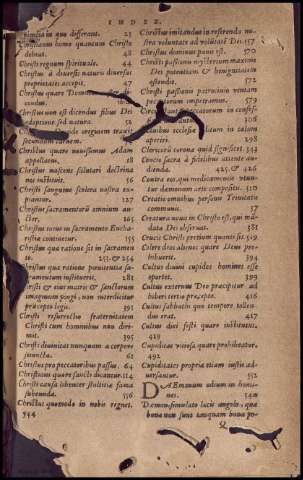 INDEX.
in quo differant. 25
homo quantum Christo
debeat. 48
Christi regnum spirituale. 44
Christus à diuersis naturis diuersas
proprietates accepit. 47
Christus quare
Christus non est dicendus filius Dei
adoptione sed natura. 39
regnum
secundum carnem.
Christus quare nouissimus Adam
appellatus. 18
Christus nascens salutari doctrina
nos instituit. 56
Christi sanguine scelera nostra ex-
piantur. 127
Christus sacramentorũ omnium au-
ctor. 165
Christus totus in sacramento Eucha-
ristia continetur. 155
Christus qua ratione sit in sacramen
to. 253. & 254
Christus qua ratione pœnitentia sa-
cramentum instituerit. 281
Christi & eius matris & sanctorum
imagines pingi, non interdicitur
præcepto legis. 401
Christi resurrectio fraternitatem
Christi cum hominibus non diri-
mit. 395
Christi diuinitas nunquam a corpore
seiuncta. 61
Christus pro peccatoribus passus. 64
Christiani quare sancti dicantur. 114
Christi causa libenter stultitia fama
subeunda. 556
Christus quomodo in nobis regnet.
544
Christus imitandus in referenda no-
stra voluntate ad volũtatẽ Dei. 557
Christus dominus panis est. 570
Christi passionis mysterium maximè
Dei potentiam & benignitatem
ostendit. 572
Christi passionis patrocinio veniam
peccatorum impetramus. 579
in confessio
ecclesiæ in cœlum
aperiri. 298
Clericorũ corona quid significet. 343
Concio sacra à fidelibus attente au-
dienda. 425. & 426
Contra eos qui medicamentis vtun-
tur dæmonum arte compositis. 310
Creatio omnibus personis Trinitatis
communis. 37
Creatura noua in Christo est, qui mã-
data Dei obseruat. 381
Crucis Christi pretium quantũ sit. 519
Cultum deos alienos quare Deus pro-
hibuerit. 394
Cultus diuini cupidos homines esse
oportet. 399
Cultus externus Deo præcipitur ad
hiberi tertio præcepto. 416
Cultus sabbathi quo tempore tollen-
dus erat. 417
Cultus dies festi quare institutus.
419
Cupiditas vitiosa quare prohibeatur.
492
Cupiditates propria etiam iustis ad-
uersantur. 552
DAEmonum odium in homi-
nes. 546
Dæmon simulato lucis angelo, qua
bona non sunt tanquam bona pro-